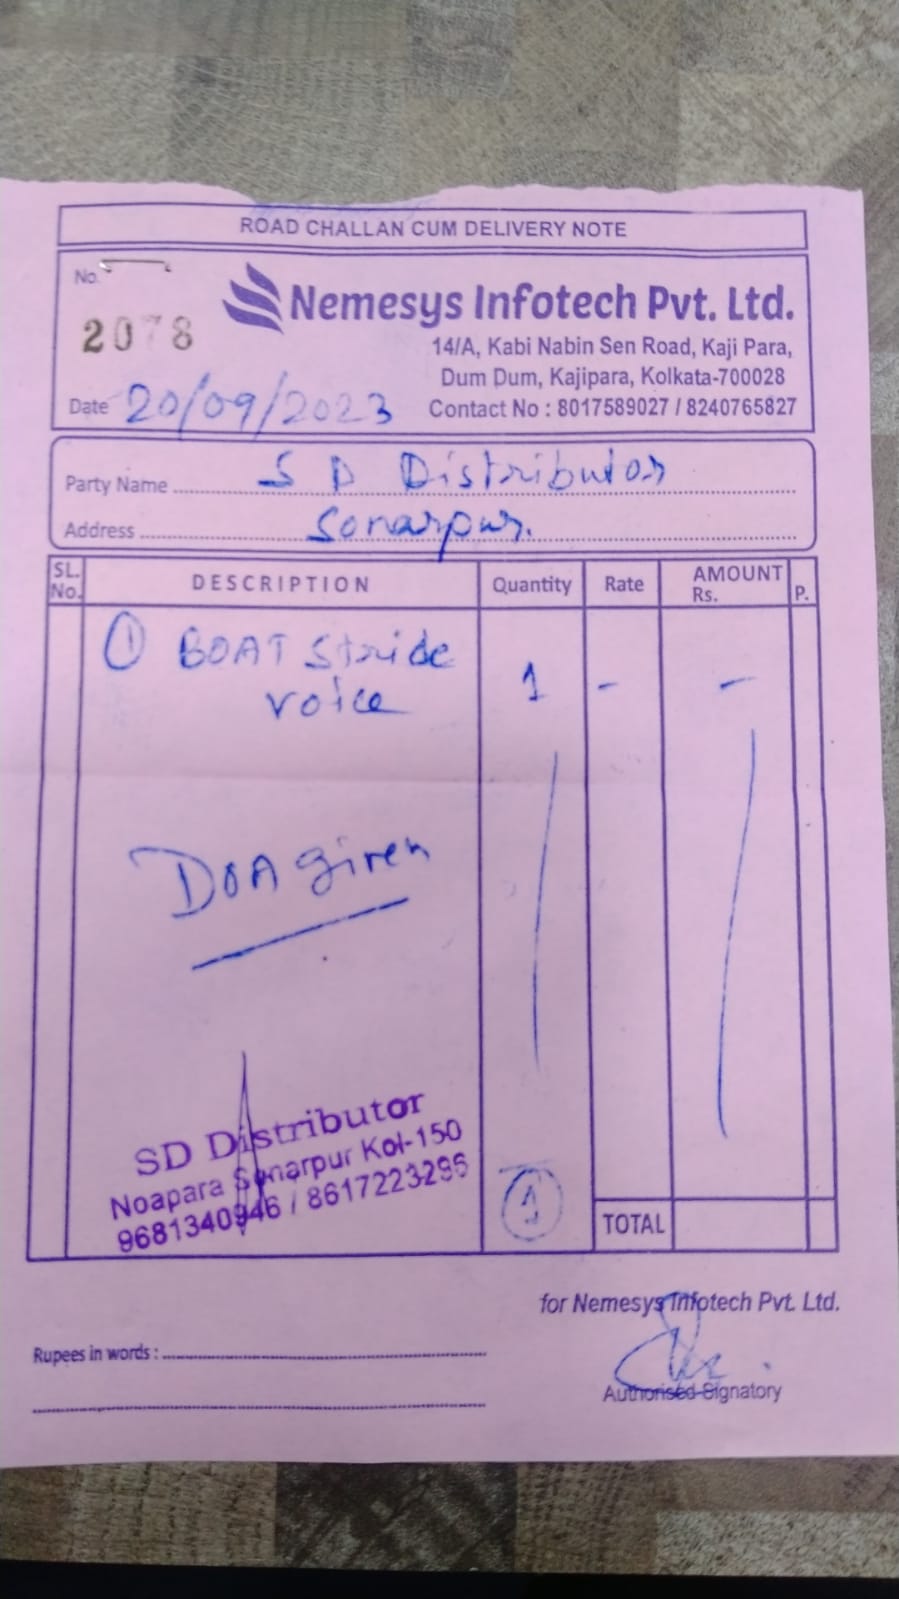 ROAD CHALLAN CUM DELIVERY NOTE
No.
2078
Nemesys Infotech Pvt. Ltd.
14/A, Kabi Nabin Sen Road, Kaji Para,
Dum Dum, Kajipara, Kolkata-700028
Date 20/09/2023
Contact No : 8017589027 / 8240765827
Party Name S D Distributor
Address Sonarpur.
SL. No. DESCRIPTION Quantity Rate AMOUNT Rs. P.
① BOAT Stride
voice 1 - -
DOA given
SD Distributor
Noapara Sonarpur Kol-150
9681340946 / 8617223295
1
TOTAL
for Nemesys Infotech Pvt. Ltd.
Rupees in words :
Authorised Signatory